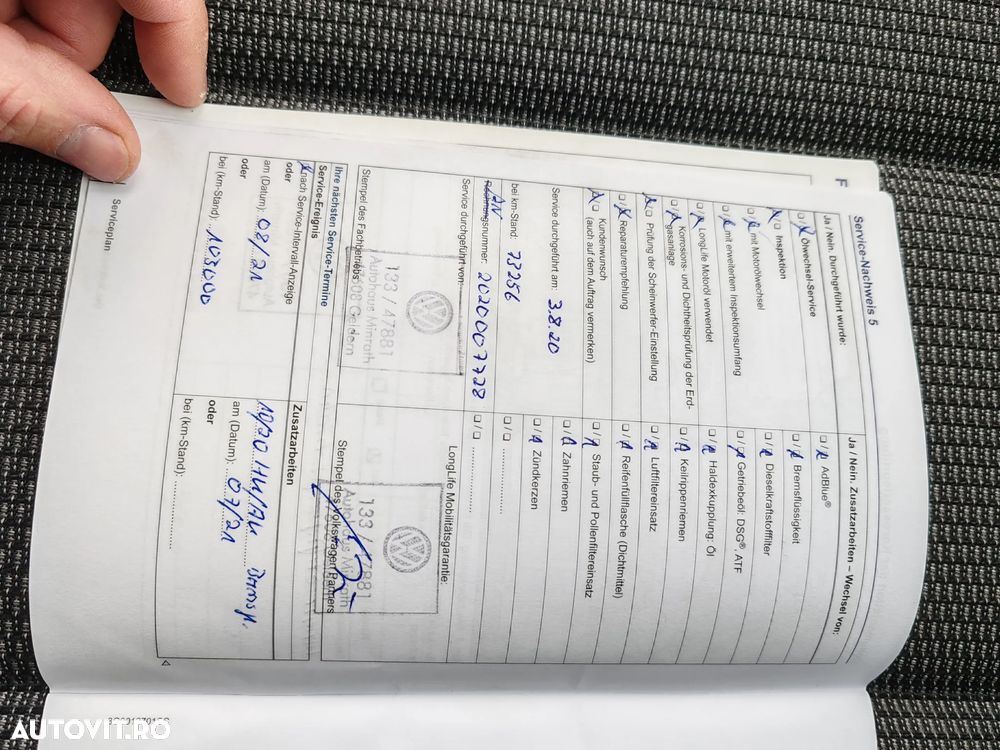 Service-Nachweis 5
Ja / Nein. Durchgeführt wurde:
Ölwechsel-Service
Inspektion
mit Motorölwechsel
mit erweitertem Inspektionsumfang
LongLife Motoröl verwendet
Korrosions- und Dichtheitsprüfung der Erd-
gasanlage
Prüfung der Scheinwerfer-Einstellung
Reparaturempfehlung
Kundenwunsch
(auch auf dem Auftrag vermerken)
Service durchgeführt am: 3.8.20
bei km-Stand: 73256
AN
Rechnungsnummer: 2020007728
Service durchgeführt von:
193 / 47881
Autohaus Minrath
608 Geldern
Stempel des Fachbetriebs
Ja / Nein. Zusatzarbeiten – Wechsel von:
AdBlue®
Bremsflüssigkeit
Dieselkraftstofffilter
Getriebeöl: DSG®, ATF
Haldexkupplung: Öl
Keilrippenriemen
Luftfiltereinsatz
Reifenfüllflasche (Dichtmittel)
Staub- und Pollenfiltereinsatz
Zahnriemen
Zündkerzen
LongLife Mobilitätsgarantie:
Autohaus Minrath
Stempel des Volkswagen Partners
Ihre nächsten Service-Termine
Service-Ereignis
nach Service-Intervall-Anzeige
oder
am (Datum): 08/21
oder
bei (km-Stand): 103000
Zusatzarbeiten
10/20 HU/AU
am (Datum): 07/21
oder
bei (km-Stand):
Serviceplan
AUTOVIT.RO